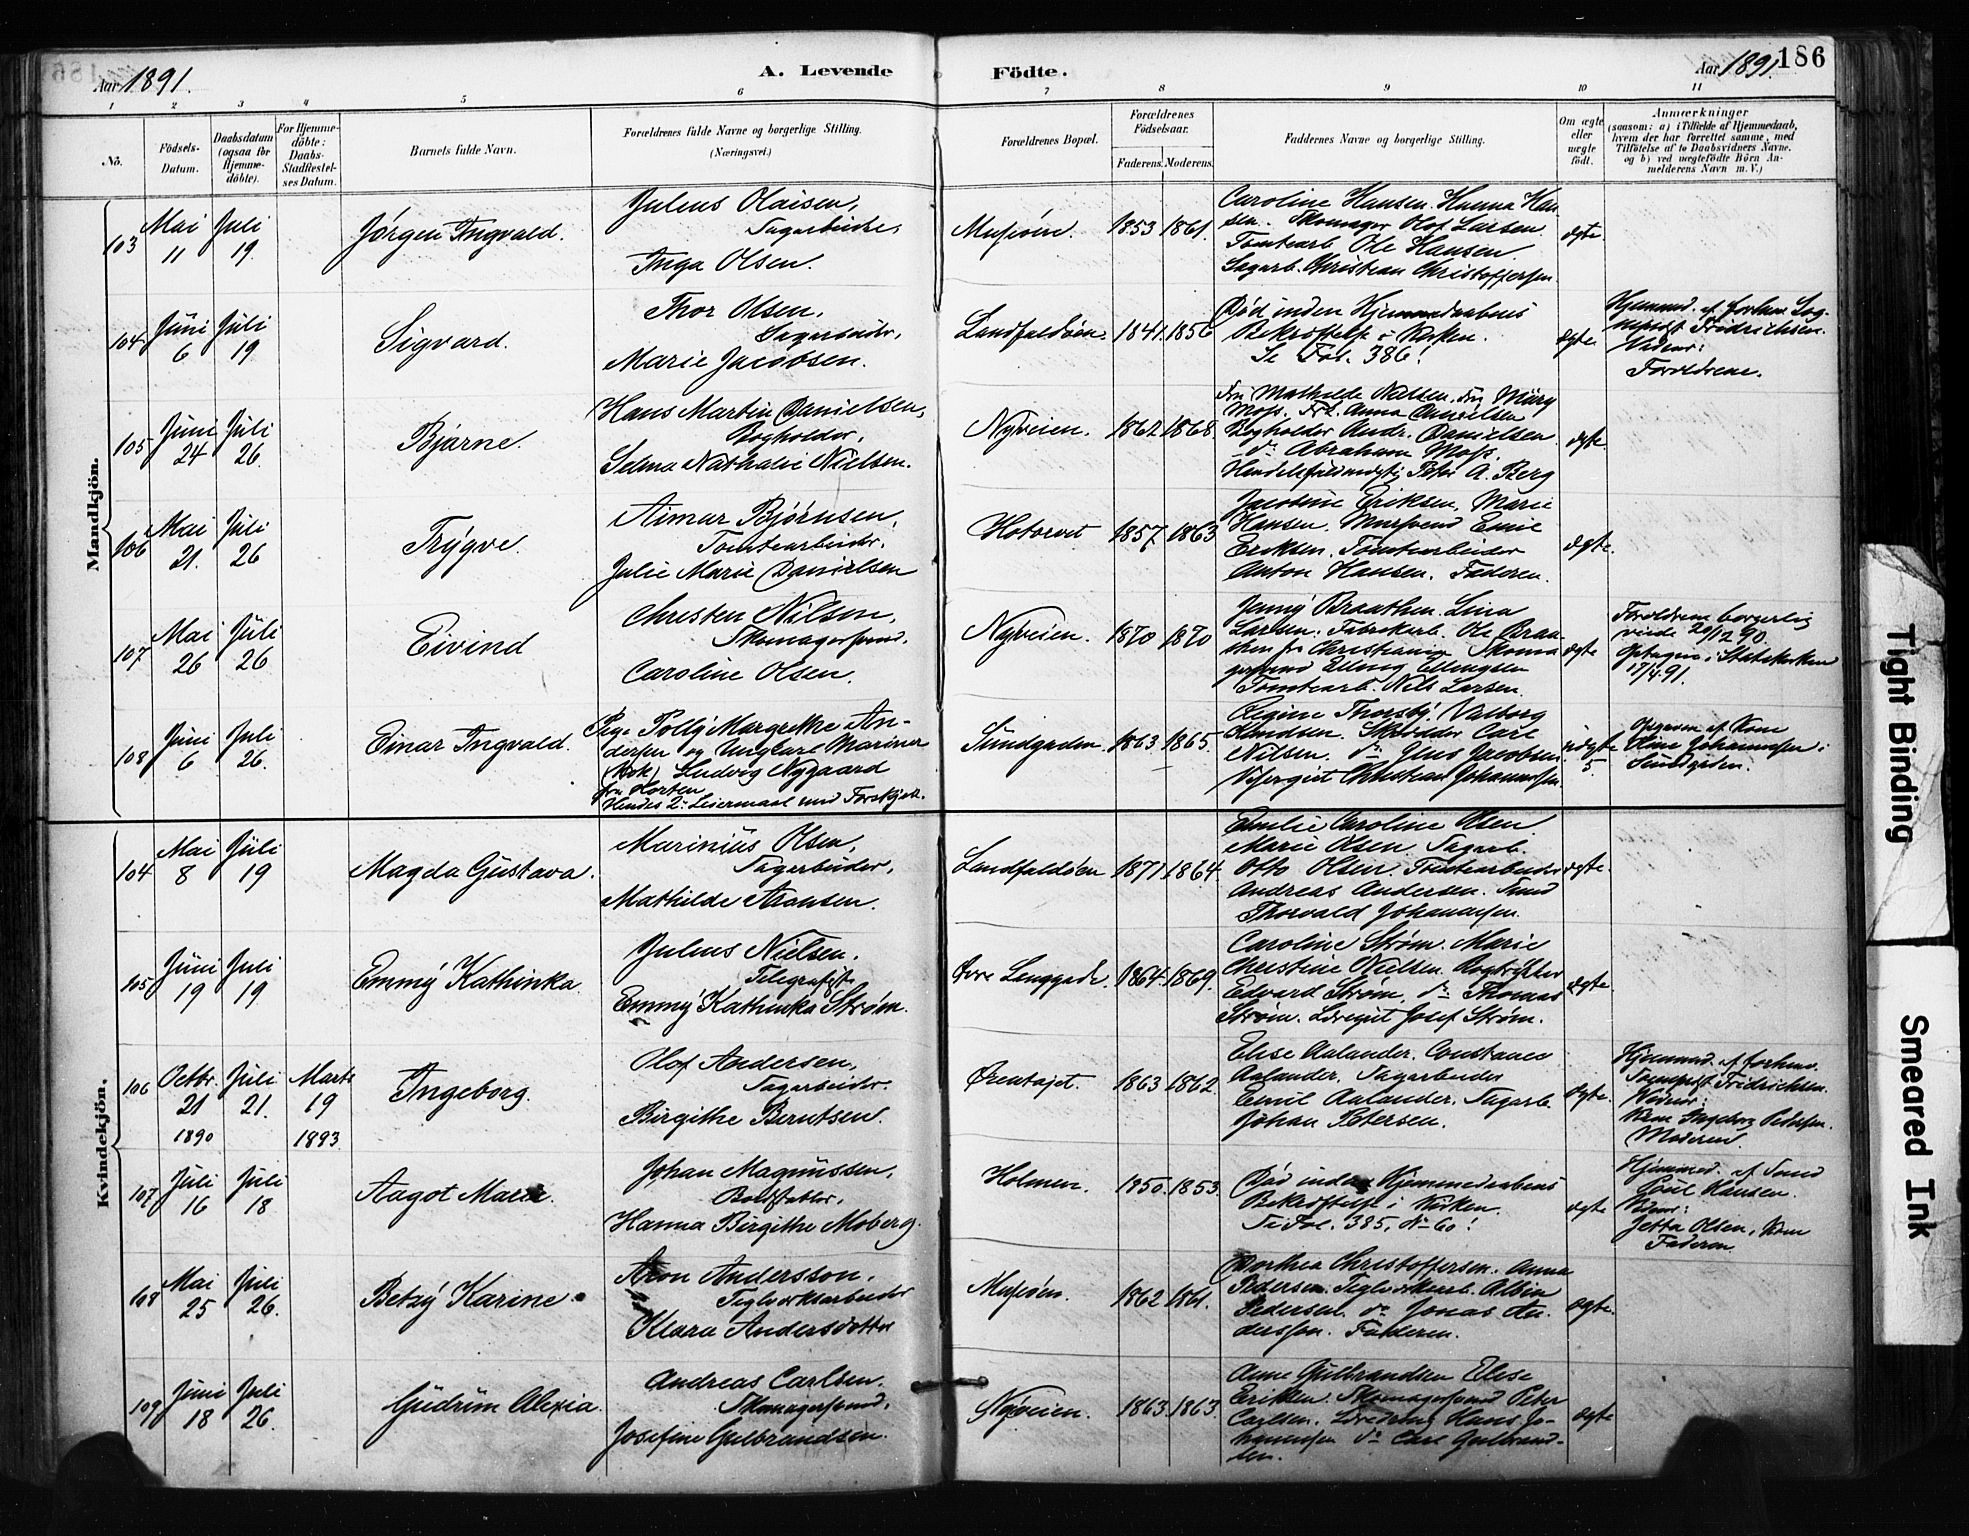 Aar 1891.
A. Levende Födte.
Aar 1891. 186
1 2 3 4 5 6 7 8 9 10 11
No.
Födsels-
Datum.
Daabsdatum
(ogsaa for
Hjemme-
döbte).
For Hjemme-
döbte:
Daabs-
Stadfæstel-
ses Datum.
Barnets fulde Navn.
Forældrenes fulde Navne og borgerlige Stilling.
(Næringsvei.)
Forældrenes Bopæl.
Forældrenes
Födselsaar.
Faderens. Moderens.
Faddernes Navne og borgerlige Stilling.
Om ægte
eller
uægte
født.
Anmærkninger
(saasom: a) i Tilfælde af Hjemmedaab,
hvem der har forrettet samme, med
Tilföielse af to Daabsvidners Navne.
og b) ved uægtefödte Börn An-
melderens Navn m. V.)
Mandkjön.
103
Mai
11
Juli
19.
Jørgen Ingvald.
Julius Olaisen,
Sagarbeider,
Inga Olsen.
1853 1861.
Caroline Hansen. Hanna Han
sen. Skomager Olof Larsen
Tomtearb. Ole Hansen
Sagarb. Christian Christoffersen
ægte.
104
Juni
6
Juli
19
Sigvard.
Thor Olsen,
Sagarbeider,
Marie Jacobsen.
Landfaldøen.
1841. 1856
Død inden Hjemmedaabens
Bekræftelse i Kirken.
Se Fol. 386!
ægte
Hjemmed. af forhen. Sog-
neprest Fredrichsen.
Vidner:
Forældrene.
105
Juni
24
Juli
26.
Bjarne.
Hans Martin Danielsen,
Bogholder,
Selma Nathalie Nielsen.
Nyveien.
1862 1868
Fru Mathilde Nielsen. Fru Mary
Moss. Frk. Anna Danielsen
Bogholder Andr. Danielsen
do Abraham Moss.
Handelsfuldmægtig Peter A. Berg
ægte.
106
Mai
21.
Juli
26
Trygve.
Aimar Bjørnsen,
Tomtearbeider,
Julie Marie Danielsen
Hotorvet
1857. 1863
Jacobine Eriksen, Marie
Hansen. Mursvend Emil
Eriksen. Tomtearbeider
Anton Hansen. Faderen.
ægte.
107
Mai
26
Juli
26
Eivind
Christen Nilsen,
Skomagersvend.
Caroline Olsen.
Nyveien.
1870 1870
Jenny Braathen. Lina
Larsen. Fabrikarb. Ole Braa-
then fra Christiania Skoma
gersvend Elling Ellingsen
Tomtearb. Nils Larsen.
ægte
Forældrene borgerlig
viede 20/12 90
Optagen i Statskirken
17/4 91.
108
Juni
6
Juli
26.
Einar Ingvald.
Pige Polly Margrethe An-
dersen og Ungkarl Mariner
(Kok) Ludvig Nygaard
fra Horten
Hendes 2: Leiermaal med Forskjell.
Sundgaden.
1863 1865.
Regine Thorsby. Valborg
Knudsen. Skrædder Carl
Nilsen. do Jens Jacobsen
Christian Johannesen
uægte
5.
Opgiven af Kone
Johannesen i
Sundgaden.
Kvindekjön.
104
Mai
8
Juli
19
Magda Gustava.
Marinius Olsen,
Sagarbeider,
Mathilde Aronsen.
Landfaldøen
1871 1864
Emilie Caroline Olsen
Marie Olsen Sagarb.
Otto Olsen. Tomtearbeider
Andreas Andersen. Smed
Thorvald Johannesen.
ægte.
105
Juni
19
Juli
19
Emmy Kathinka.
Julius Nielsen.
Telegrafist.
Emmy Kathinka Strøm.
Øvre Langgade.
1864. 1869.
Caroline Strøm. Marie
Christine Nielsen. Bogtrykker
Edvard Strøm. do Thomas
Strøm. Josef Strøm.
ægte
106
Octbr.
21
1890
Juli
21.
Marts
19
1893
Ingeborg.
Olof Andersen,
Sagarbeider.
Birgithe Berntsen.
Ørentajet.
1863 1862.
Elise Aalander. Constance
Aalander. Sagarbeider
Emil Aalander. Sagarb.
Johan Petersen.
ægte.
Hjemmed. af forhenv.
Sogneprest Fredrichsen.
Vidner:
Kone Ingeborg Pedersen.
Moderen
107
Juli
16
Juli
18
Aagot Marie.
Johan Magnussen,
Hanna Birgithe Moberg.
Holmen.
1850. 1853.
Død inden Hjemmedaabens
Bekræftelse i Kirken.
Se Fol. 385, No 60!
ægte
Hjemmed. af Smed
Poul Hansen.
Vidner:
Jetta Olsen, Kone
Faderen
108
Mai
25
Juli
26.
Betzy Karine
Aron Andersson,
Teglverksarbeider
Klara Andersdotter
1862 1861.
Dorthea Christoffersen. Anna
Pedersen. Teglverksarb. Albin
Pedersen. do Jonas An-
derssen. Faderen.
ægte.
109
Juni
18
Juli
26.
Gudrun Alexia.
Andreas Carlsen.
Skomagersvend.
Josefine Gulbrandsen.
Nyveien.
1863. 1863.
Anne Gulbrandsen Elise
Eriksen. Skomagersvend Peter
Carlsen. Hans Jo-
hannesen do Carl Gulbrand-
sen.
ægte
Tight Binding
Smeared Ink